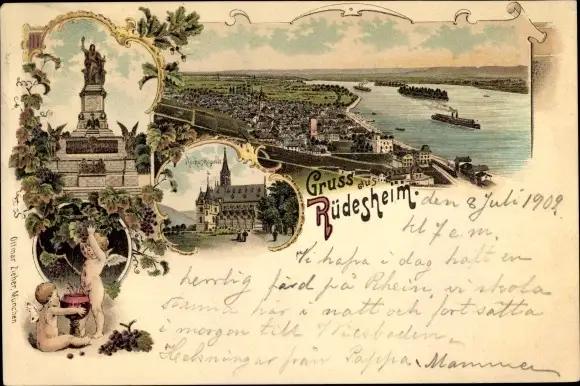 Rochus Kapelle
Gruss aus
Rüdesheim.
den 8 Juli 1902
kl 7 e.m.
Vi hafa i dag haft en
herrlig färd på Rhein, vi skola
stanna här i natt och fortsätta
i morgon till Wiesbaden.
Helsningar från Pappa. Mamma
Ottmar Zieher, München.